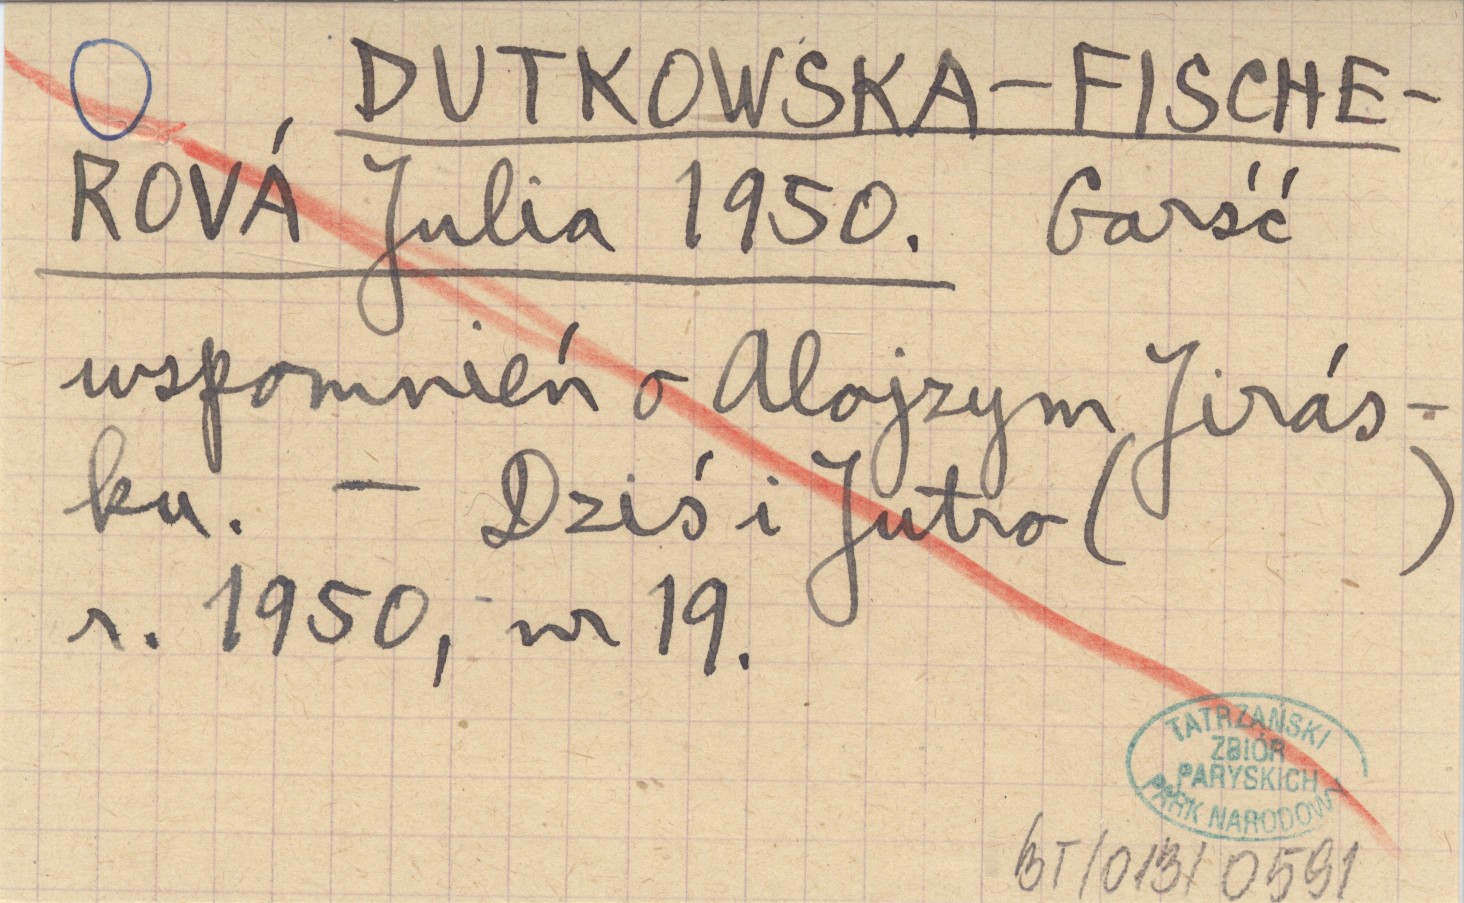 DUTKOWSKA-FISCHE-
ROVÁ Julia 1950. Garść
wspomnień o Alojzym Jirás-
ku. — Dziś i Jutro ( )
r. 1950, nr 19.
TATRZAŃSKI
ZBIÓR
PARYSKICH
PARK NARODOWY
BT/013/0591